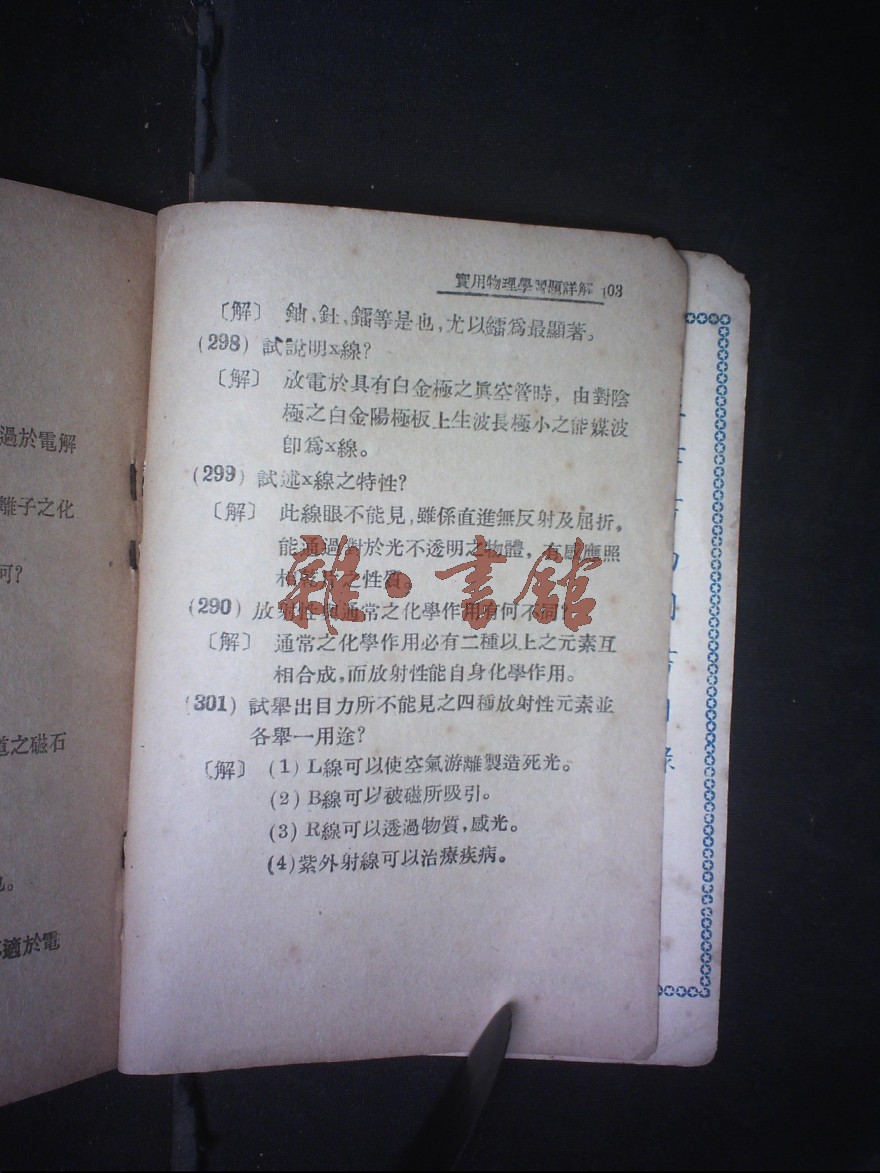 過於電解
離子之化
何?
道之磁石
適於電
實用物理學習題詳解 103
〔解〕 鈾,釷,鐳等是也,尤以鐳爲最顯著。
(298) 試說明x線?
〔解〕 放電於具有白金極之眞空管時, 由對陰
極之白金陽極板上生波長極小之能媒波
卽爲x線。
(299) 試述x線之特性?
〔解〕 此線眼不能見,雖係直進無反射及屈折,
能通過對於光不透明之物體, 有感應照
相乾片之性質。
(290) 放射性與通常之化學作用有何不同?
〔解〕 通常之化學作用必有二種以上之元素互
相合成,而放射性能自身化學作用。
(301) 試舉出目力所不能見之四種放射性元素並
各舉一用途?
〔解〕 (1) L線可以使空氣游離製造死光。
(2) B線可以被磁所吸引。
(3) R線可以透過物質,感光。
(4)紫外射線可以治療疾病。
雜·書館